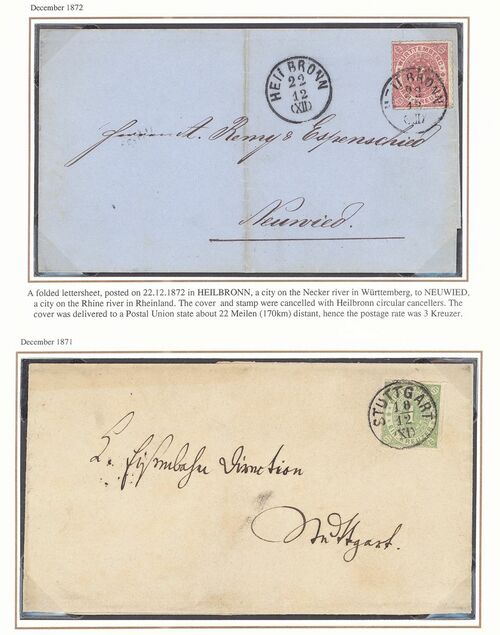 December 1872
HEILBRONN
22
12
(XII)
WÜRTTEMBERG
HEILBRONN
22
12
(XII)
Herren A. Remy & Espenschied
Neuwied.
A folded lettersheet, posted on 22.12.1872 in HEILBRONN, a city on the Necker river in Württemberg, to NEUWIED,
a city on the Rhine river in Rheinland. The cover and stamp were cancelled with Heilbronn circular cancellers. The
cover was delivered to a Postal Union state about 22 Meilen (170km) distant, hence the postage rate was 3 Kreuzer.
December 1871
STUTTGART
10
12
(XI)
K. Eisenbahn Direction
Stuttgart.